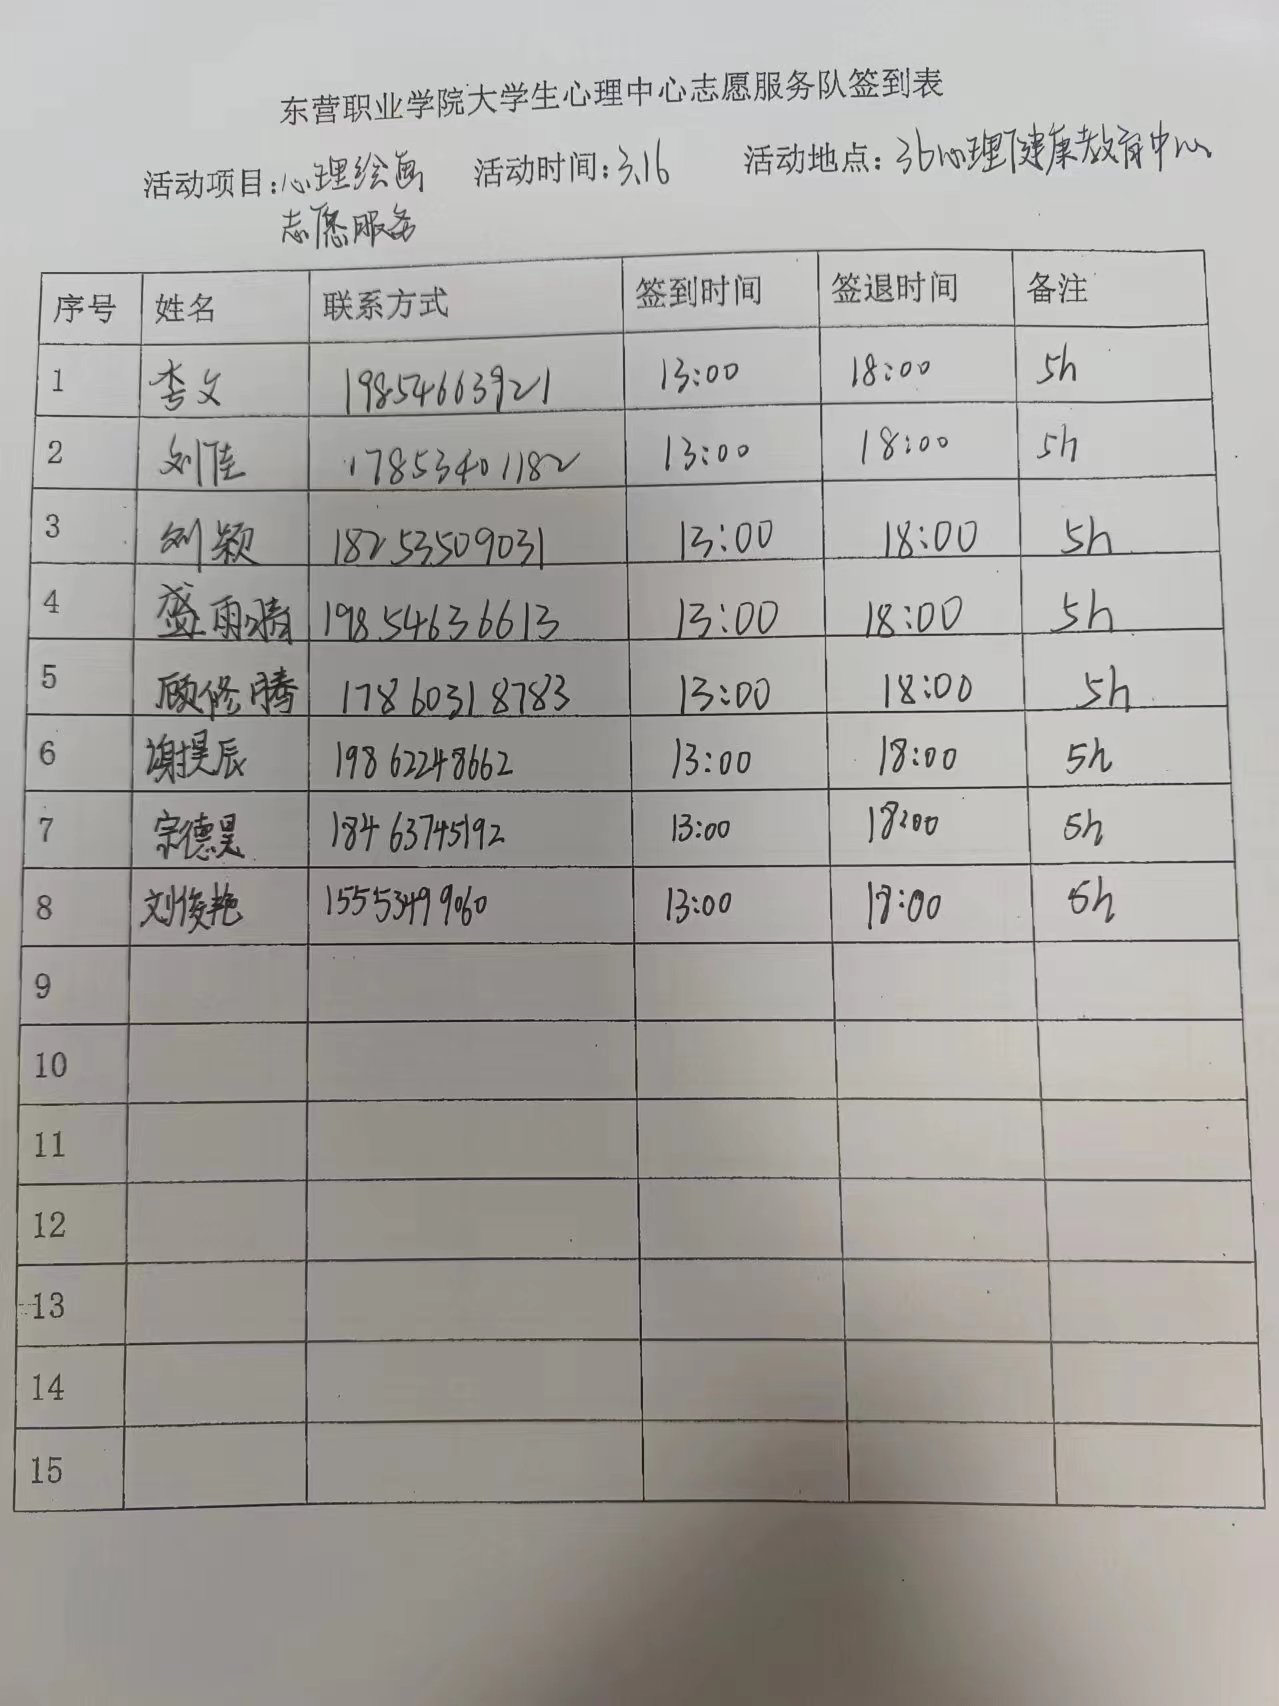 东营职业学院大学生心理中心志愿服务队签到表
活动项目:心理绘画 活动时间:3.16 活动地点:36心理健康教育中心
志愿服务
序号 姓名 联系方式 签到时间 签退时间 备注
1 李文 19854663921 13:00 18:00 5h
2 刘佳 17853401182 13:00 18:00 5h
3 刘颖 18253509031 13:00 18:00 5h
4 盛雨晴 19854636613 13:00 18:00 5h
5 顾修腾 17860318783 13:00 18:00 5h
6 谢昊辰 19862248662 13:00 18:00 5h
7 宗德昊 18463745192 13:00 18:00 5h
8 刘俊艳 15553499060 13:00 18:00 5h
9
10
11
12
13
14
15